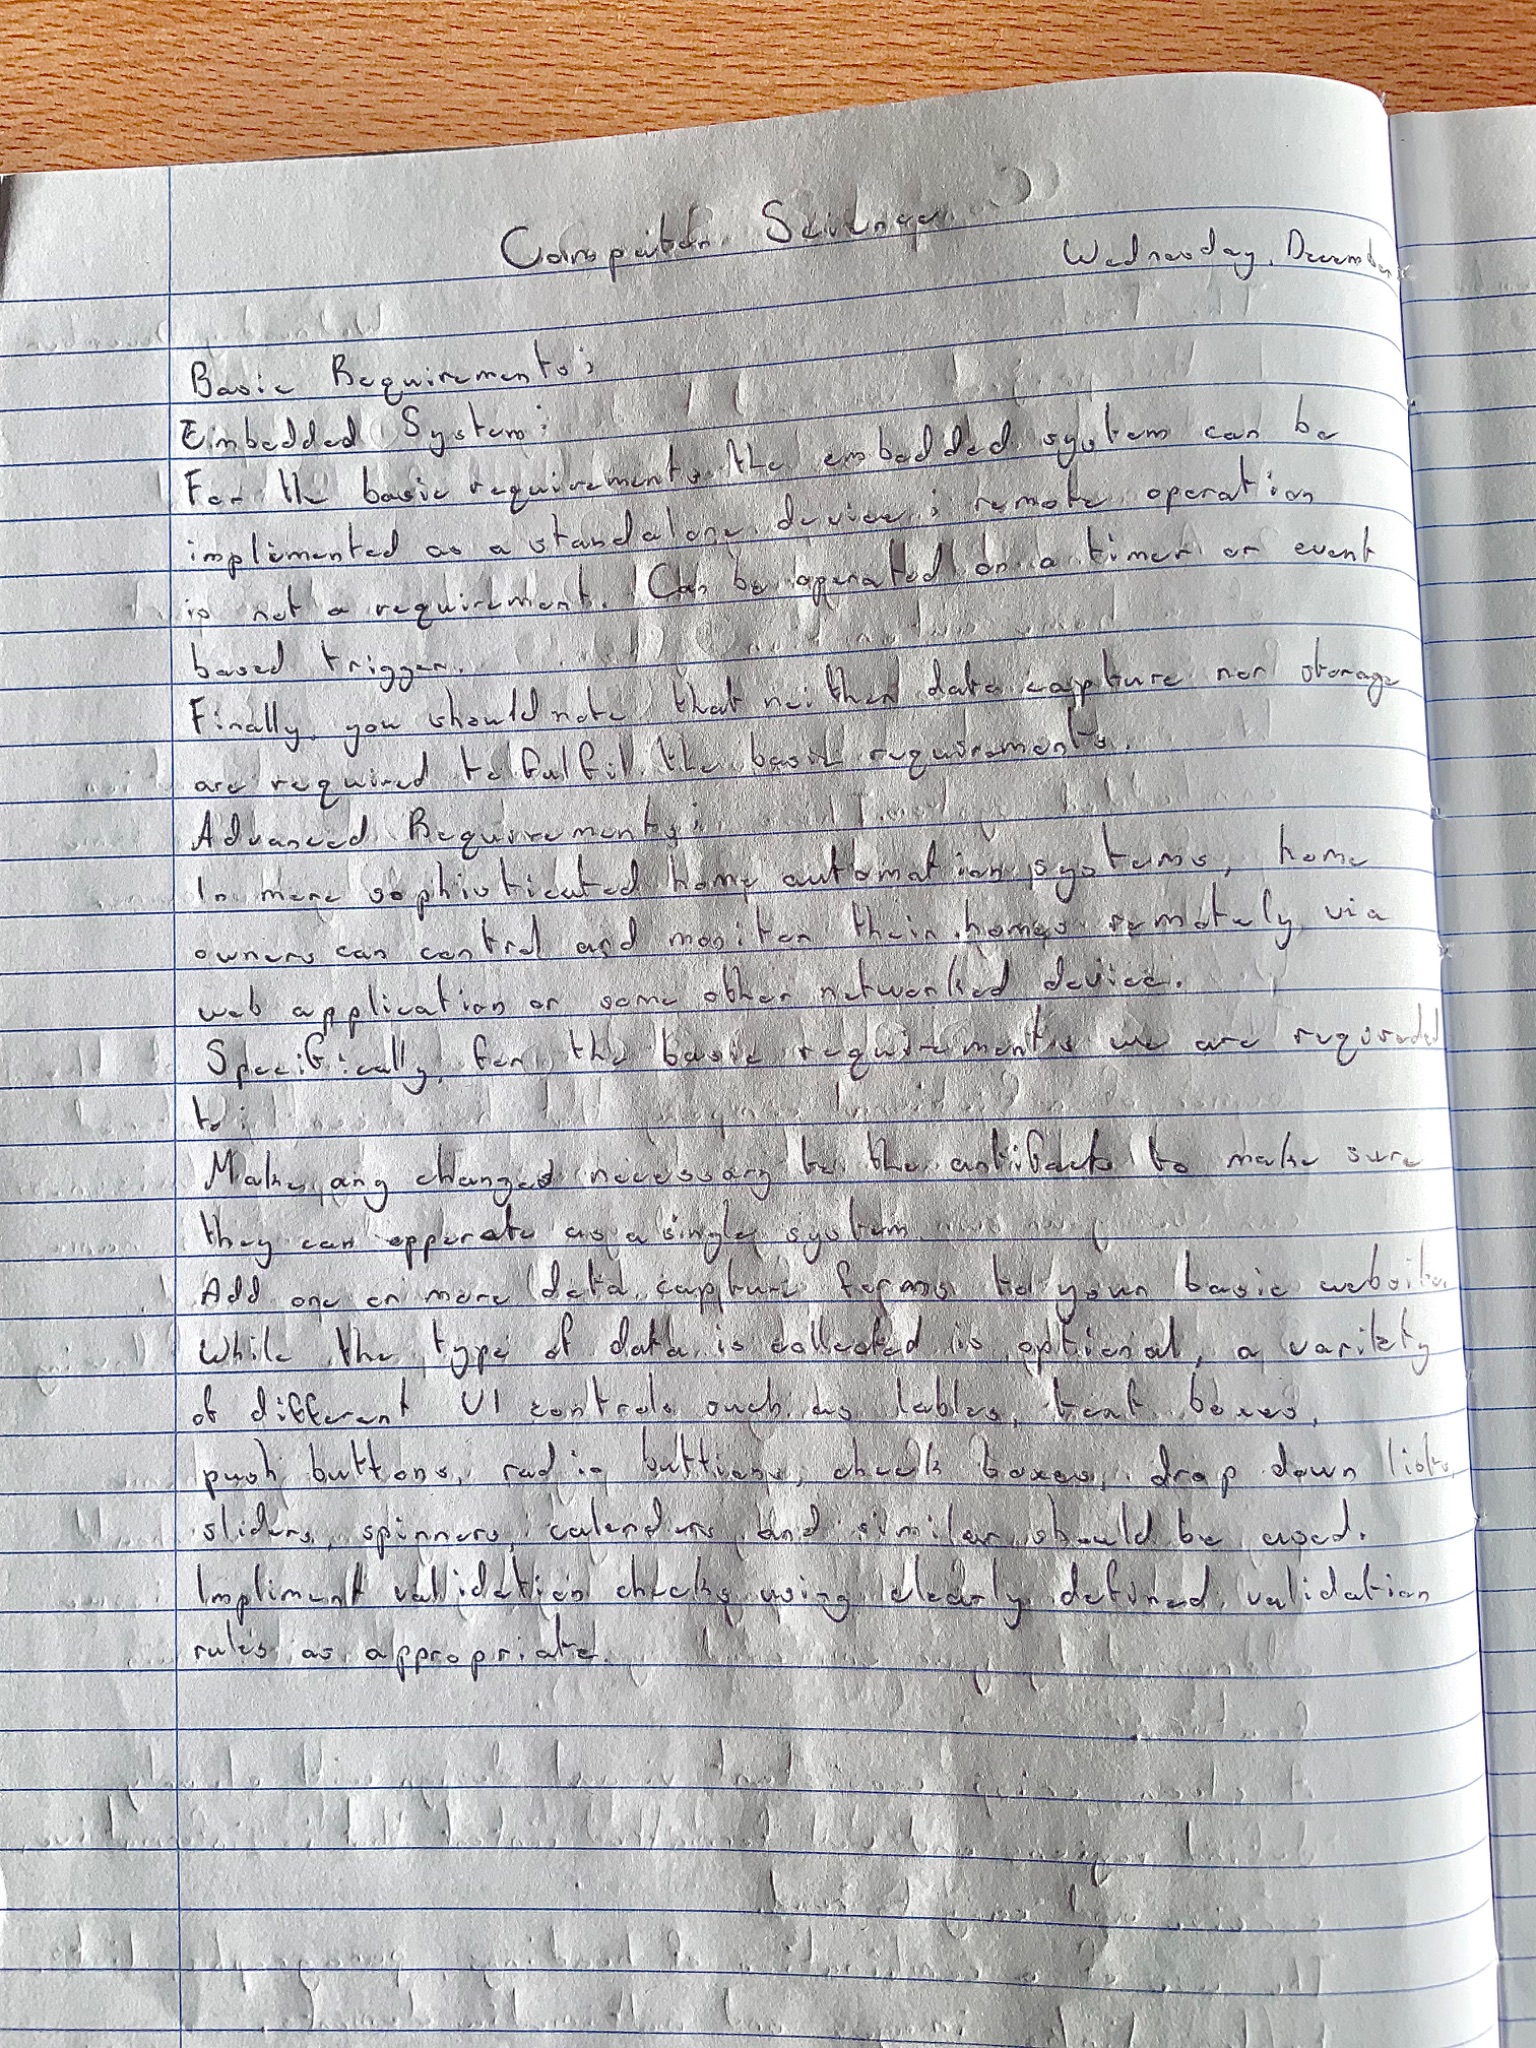 Computer Science
Wednesday, December
Basic Requirements;
Embedded System:
For the basic requirements the embedded system can be
implimented as a standalone device; remote operation
is not a requirement. Can be operated on a timer or event
based trigger.
Finally, you should note that neither data capture nor storage
are required to fulfil the basic requirements.
Advanced Requirements;
In more sophisticated home automation systems, home
owners can control and monitor their homes remotely via
web application or some other networked device.
Specifically, for the basic requirements we are required
to:
Make any changes necessary to the artifacts to make sure
they can opperate as a single system
Add one or more data capture forms to your basic website.
While the type of data is collected is optional, a variety
of different UI controls such as lables, text boxes,
push buttons, radio buttions, check boxes, drop down lists,
sliders, spinners, calenders and similar should be used.
Impliment validation checks using clearly defined validation
rules as appropriate.